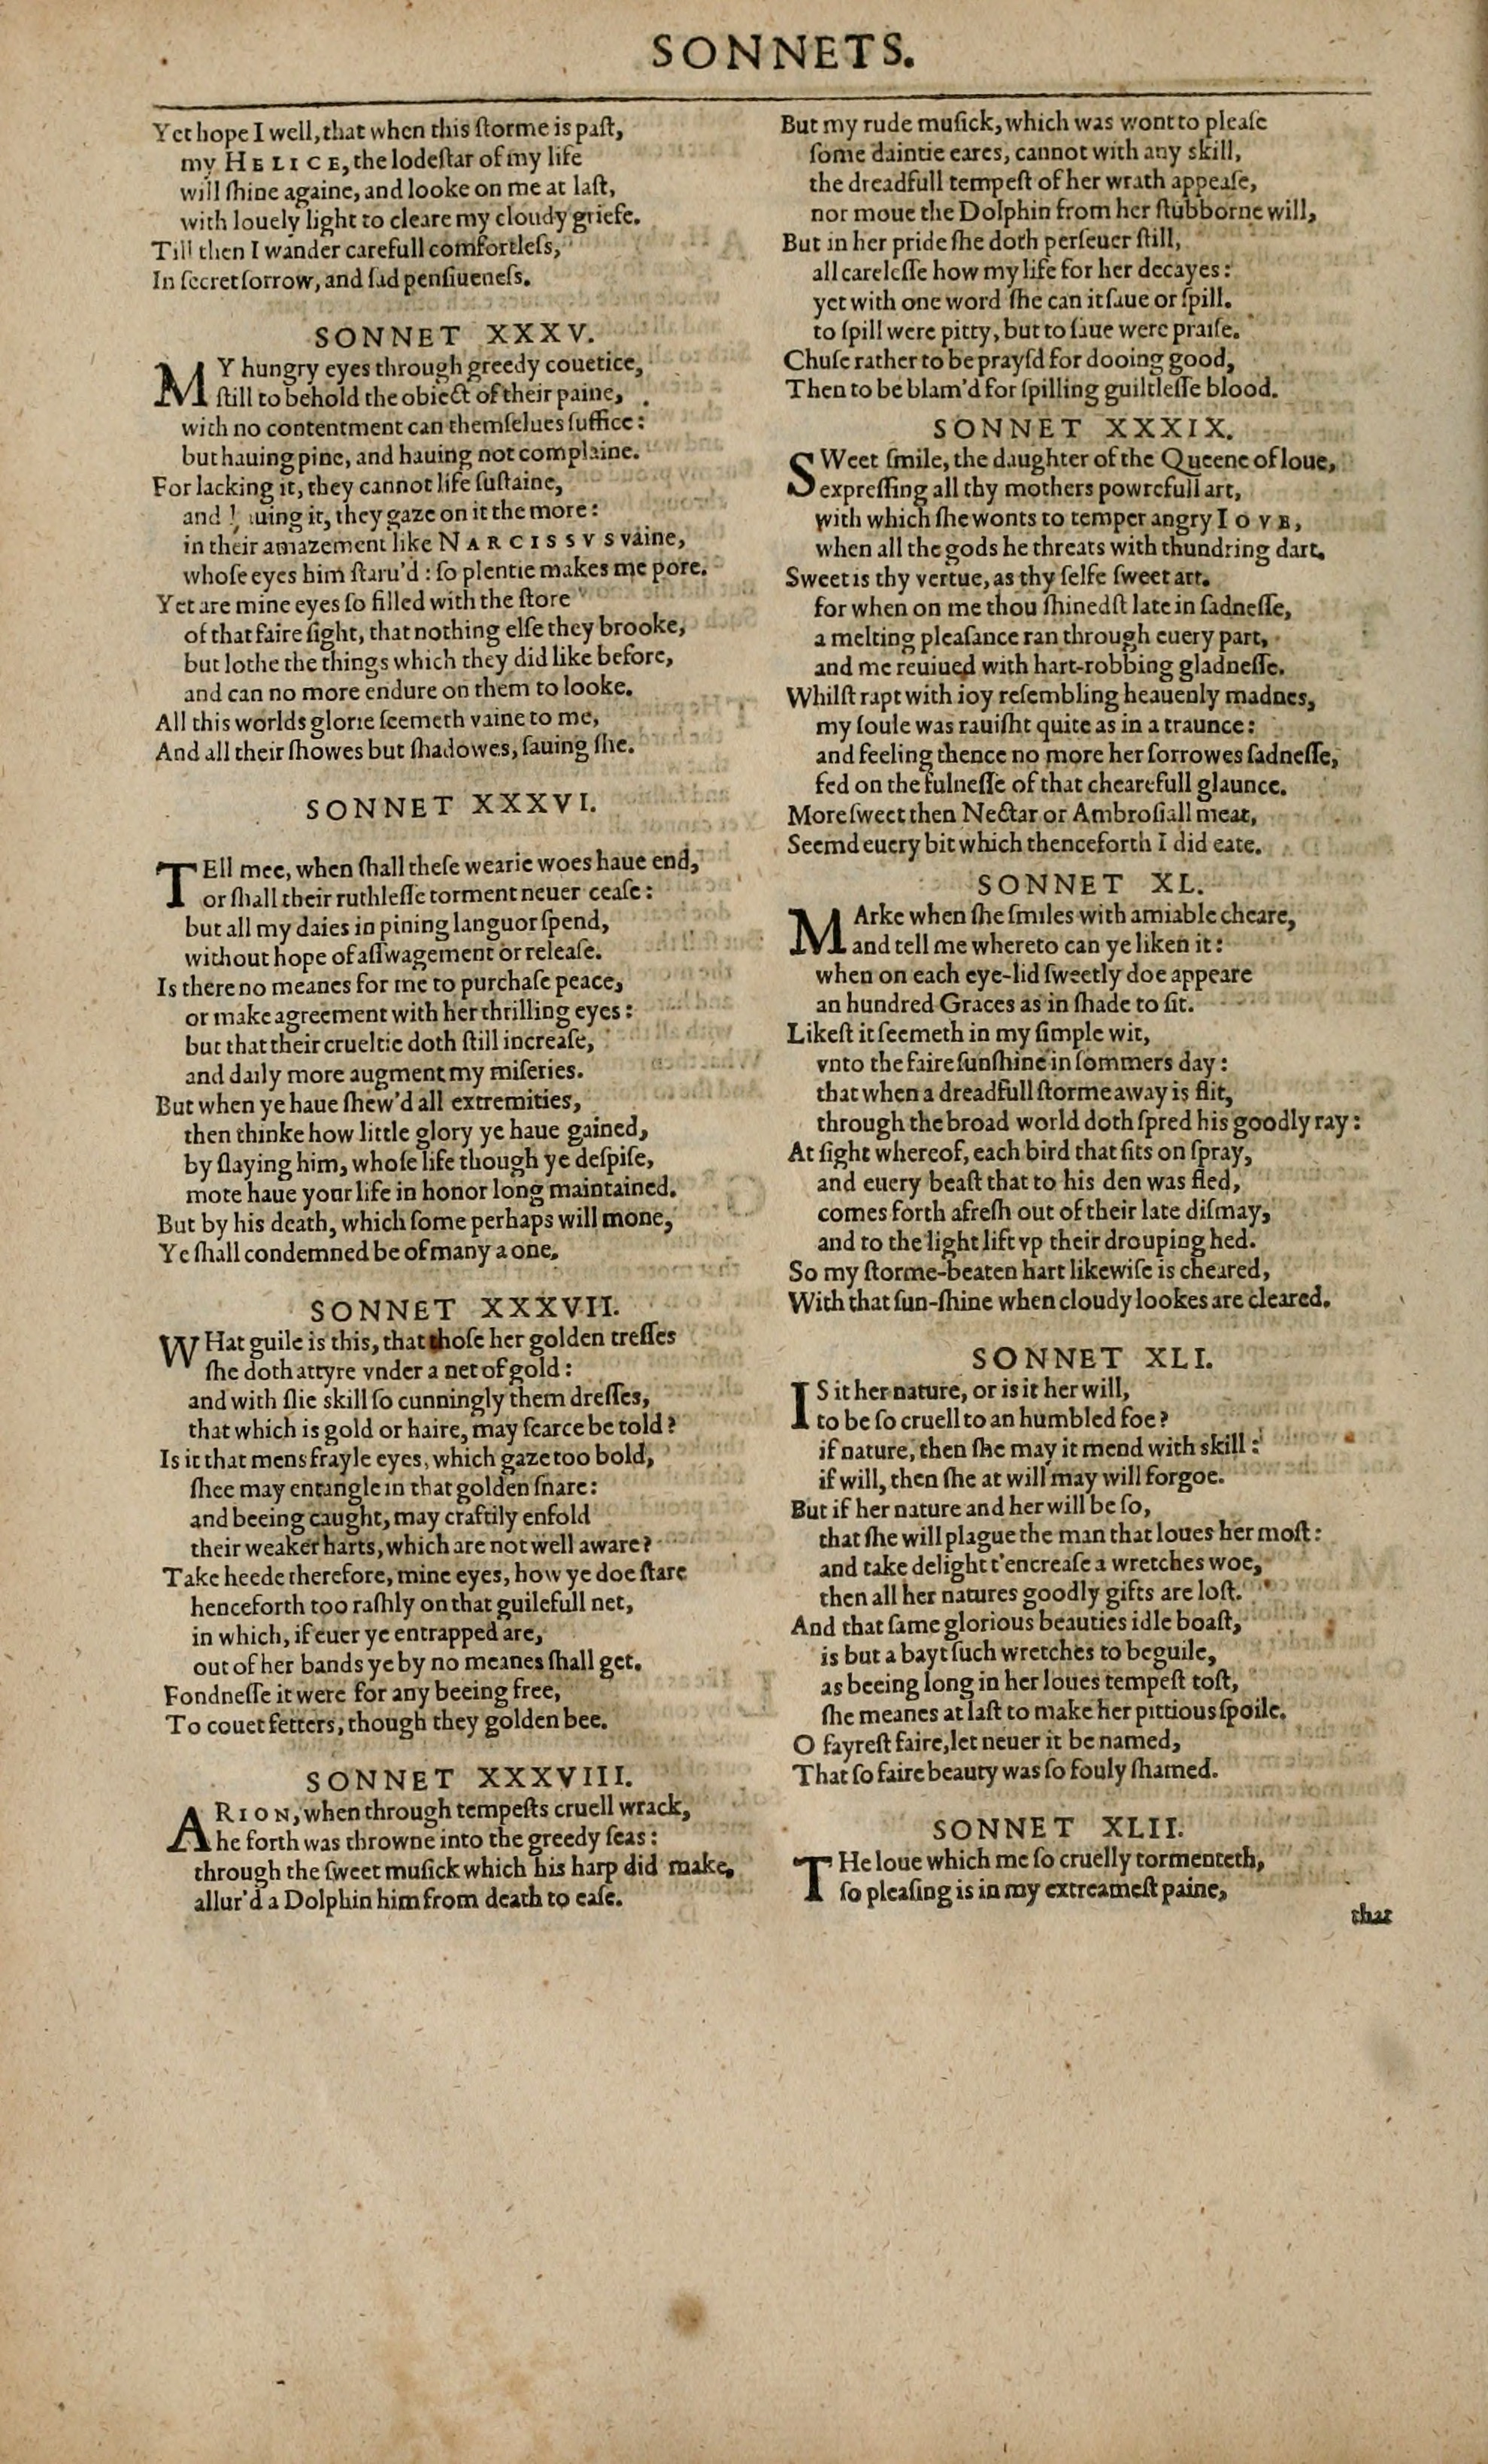 SONNETS.
Yet hope I well, that when this ſtorme is paſt,
my HELICE, the lodeſtar of my life
will ſhine againe, and looke on me at laſt,
with louely light to cleare my cloudy griefe.
Till then I wander carefull comfortleſs,
In ſecret ſorrow, and ſad penſiueneſs.
SONNET XXXV.
MY hungry eyes through greedy couetice,
ſtill to behold the obiect of their paine,
with no contentment can themſelues ſuffice:
but hauing pine, and hauing not complaine.
For lacking it, they cannot life ſuſtaine,
and hauing it, they gaze on it the more:
in their amazement like NARCISSVS vaine,
whoſe eyes him ſtaru'd: ſo plentie makes me pore.
Yet are mine eyes ſo filled with the ſtore
of that faire ſight, that nothing elſe they brooke,
but lothe the things which they did like before,
and can no more endure on them to looke.
All this worlds glorie ſeemeth vaine to me,
And all their ſhowes but ſhadowes, ſauing ſhe.
SONNET XXXVI.
TEll mee, when ſhall theſe wearie woes haue end,
or ſhall their ruthleſſe torment neuer ceaſe:
but all my daies in pining languor ſpend,
without hope of aſſwagement or releaſe.
Is there no meanes for me to purchaſe peace,
or make agreement with her thrilling eyes:
but that their crueltie doth ſtill increaſe,
and daily more augment my miſeries.
But when ye haue ſhew'd all extremities,
then thinke how little glory ye haue gained,
by ſlaying him, whoſe life though ye deſpiſe,
mote haue your life in honor long maintained.
But by his death, which ſome perhaps will mone,
Ye ſhall condemned be of many a one.
SONNET XXXVII.
WHat guile is this, that thoſe her golden treſſes
ſhe doth attyre vnder a net of gold:
and with ſlie skill ſo cunningly them dreſſes,
that which is gold or haire, may ſcarce be told?
Is it that mens frayle eyes, which gaze too bold,
ſhee may entangle in that golden ſnare:
and beeing caught, may craftily enfold
their weaker harts, which are not well aware?
Take heede therefore, mine eyes, how ye doe ſtare
henceforth too raſhly on that guilefull net,
in which, if euer ye entrapped are,
out of her bands ye by no meanes ſhall get.
Fondneſſe it were for any beeing free,
To couet fetters, though they golden bee.
SONNET XXXVIII.
ARION, when through tempeſts cruell wrack,
he forth was throwne into the greedy ſeas:
through the ſweet muſick which his harp did make,
allur'd a Dolphin him from death to eaſe.
But my rude muſick, which was wont to pleaſe
ſome daintie eares, cannot with any skill,
the dreadfull tempeſt of her wrath appeaſe,
nor moue the Dolphin from her ſtubborne will,
But in her pride ſhe doth perſeuer ſtill,
all careleſſe how my life for her decayes:
yet with one word ſhe can it ſaue or ſpill.
to ſpill were pitty, but to ſaue were praiſe.
Chuſe rather to be prayſd for dooing good,
Then to be blam'd for ſpilling guiltleſſe blood.
SONNET XXXIX.
SWeet ſmile, the daughter of the Queene of loue,
expreſſing all thy mothers powrefull art,
with which ſhe wonts to temper angry IOVE,
when all the gods he threats with thundring dart.
Sweet is thy vertue, as thy ſelfe ſweet art.
for when on me thou ſhinedſt late in ſadneſſe,
a melting pleaſance ran through euery part,
and me reuiued with hart-robbing gladneſſe.
Whilſt rapt with ioy reſembling heauenly madnes,
my ſoule was rauiſht quite as in a traunce:
and feeling thence no more her ſorrowes ſadneſſe,
fed on the fulneſſe of that chearefull glaunce.
More ſweet then Nectar or Ambroſiall meat,
Seemd euery bit which thenceforth I did eate.
SONNET XL.
MArke when ſhe ſmiles with amiable cheare,
and tell me whereto can ye liken it:
when on each eye-lid ſweetly doe appeare
an hundred Graces as in ſhade to ſit.
Likeſt it ſeemeth in my ſimple wit,
vnto the faire ſunſhine in ſommers day:
that when a dreadfull ſtorme away is flit,
through the broad world doth ſpred his goodly ray:
At ſight whereof, each bird that ſits on ſpray,
and euery beaſt that to his den was fled,
comes forth afreſh out of their late diſmay,
and to the light lift vp their drouping hed.
So my ſtorme-beaten hart likewiſe is cheared,
With that ſun-ſhine when cloudy lookes are cleared.
SONNET XLI.
IS it her nature, or is it her will,
to be ſo cruell to an humbled foe?
if nature, then ſhe may it mend with skill:
if will, then ſhe at will may will forgoe.
But if her nature and her will be ſo,
that ſhe will plague the man that loues her moſt:
and take delight t'encreaſe a wretches woe,
then all her natures goodly gifts are loſt.
And that ſame glorious beauties idle boaſt,
is but a bayt ſuch wretches to beguile,
as beeing long in her loues tempeſt toſt,
ſhe meanes at laſt to make her pittious ſpoile.
O fayreſt faire, let neuer it be named,
That ſo faire beauty was ſo fouly ſhamed.
SONNET XLII.
THe loue which me ſo cruelly tormenteth,
ſo pleaſing is in my extreameſt paine,
that